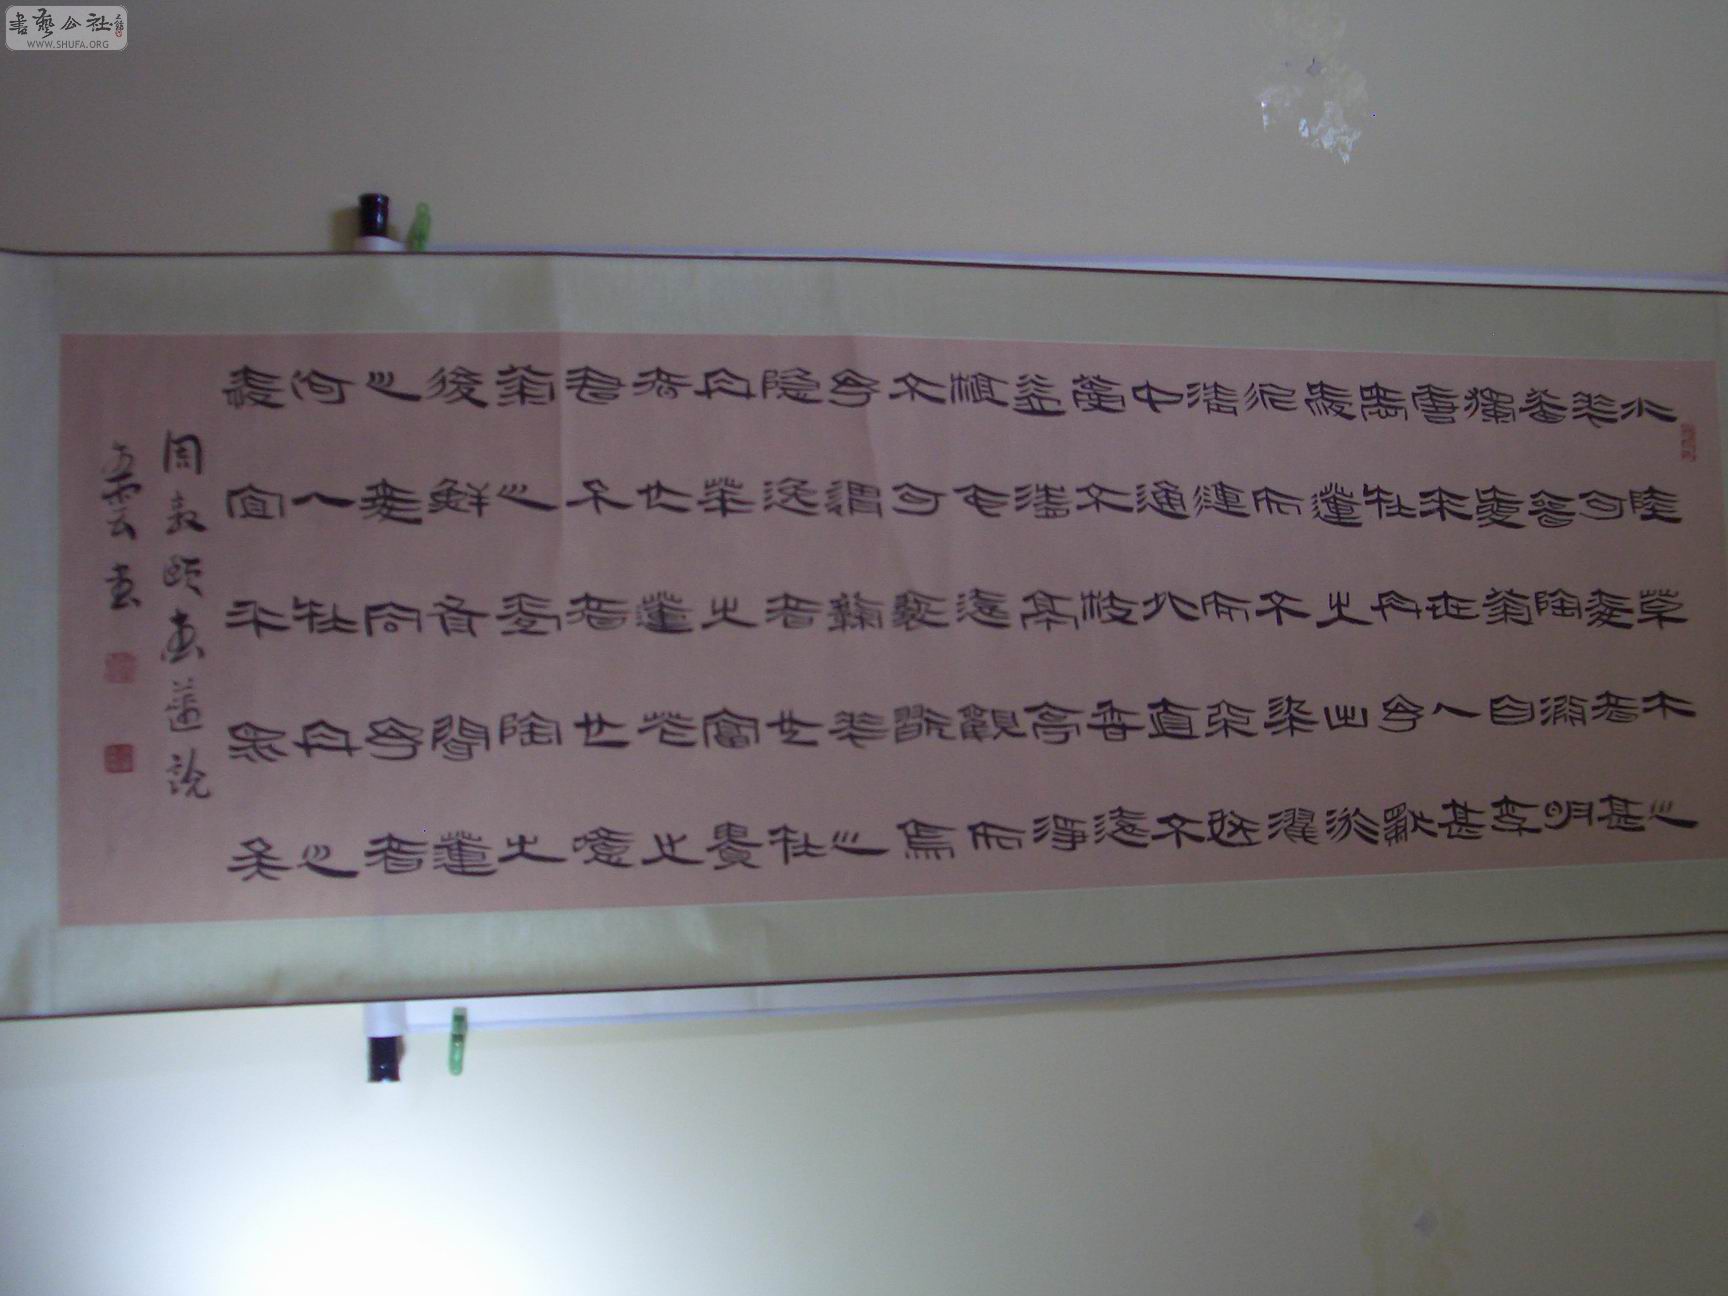 水陸草木之
花可愛者甚
蕃晉陶淵明
獨愛菊自李
唐來世人甚
愛牡丹予獨
愛蓮之出於
泥而不染濯
清漣而不妖
中通外直不
蔓不枝香遠
益清亭亭淨
植可遠觀而
不可褻翫焉
予謂菊花之
隱逸者也牡
丹花之富貴
者也蓮花之
君子者也噫
菊之愛陶之
後鮮有聞蓮
之愛同予者
何人牡丹之
愛宜乎眾矣
周敦頤愛蓮說
雲書
書藝公社
WWW.SHUFA.ORG